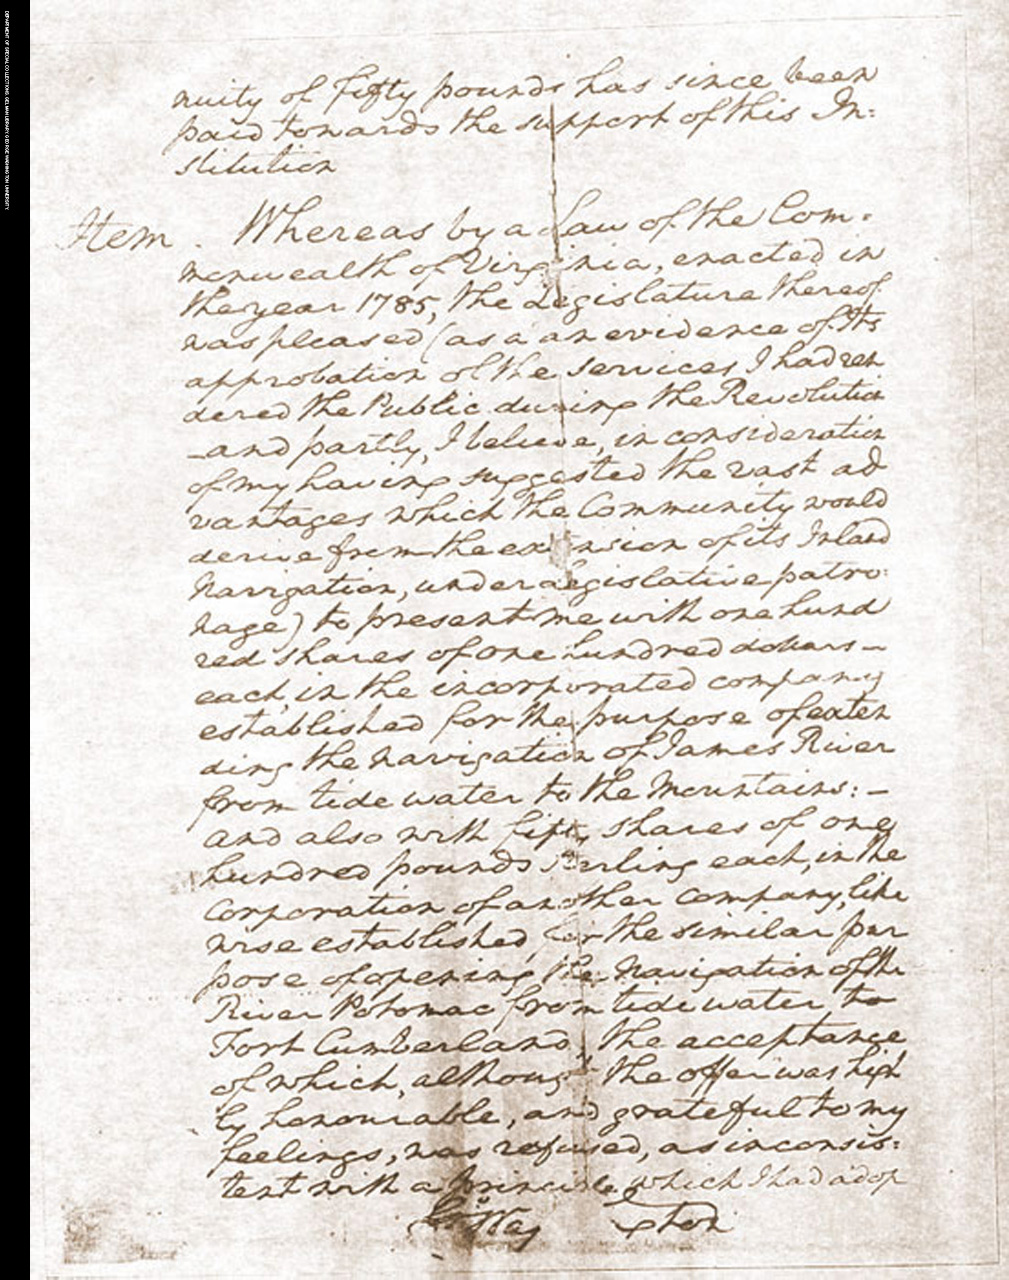 DEPARTMENT OF SPECIAL COLLECTIONS, GELMAN LIBRARY, GEORGE WASHINGTON UNIVERSITY
nuity of fifty pounds has since been
paid towards the support of this In:
stitution
Item. Whereas by a Law of the Com-
monwealth of Virginia, enacted in
the year 1785, the Legislature thereof
was pleased (as a an evidence of Its
approbation of the services I had ren
dered the Public during the Revolution
-and partly, I believe, in consideration
of my having suggested the vast ad
vantages which the Community would
derive from the extension of its Inland
Navigation, under Legislative patro-
nage) to present me with one hund
red shares of one hundred dollars -
each, in the incorporated company
established for the purpose of exten
ding the navigation of James River
from tide water to the Mountains: -
and also with fifty shares of one
hundred pounds Sterling each, in the
Corporation of another company, like
wise established for the similar pur
pose of opening the Navigation of the
River Potomac from tide water to
Fort Cumberland, the acceptance
of which, although the offer was high
ly honourable, and grateful to my
feelings, was refused, as inconsis:
tent with a principle which I had adop